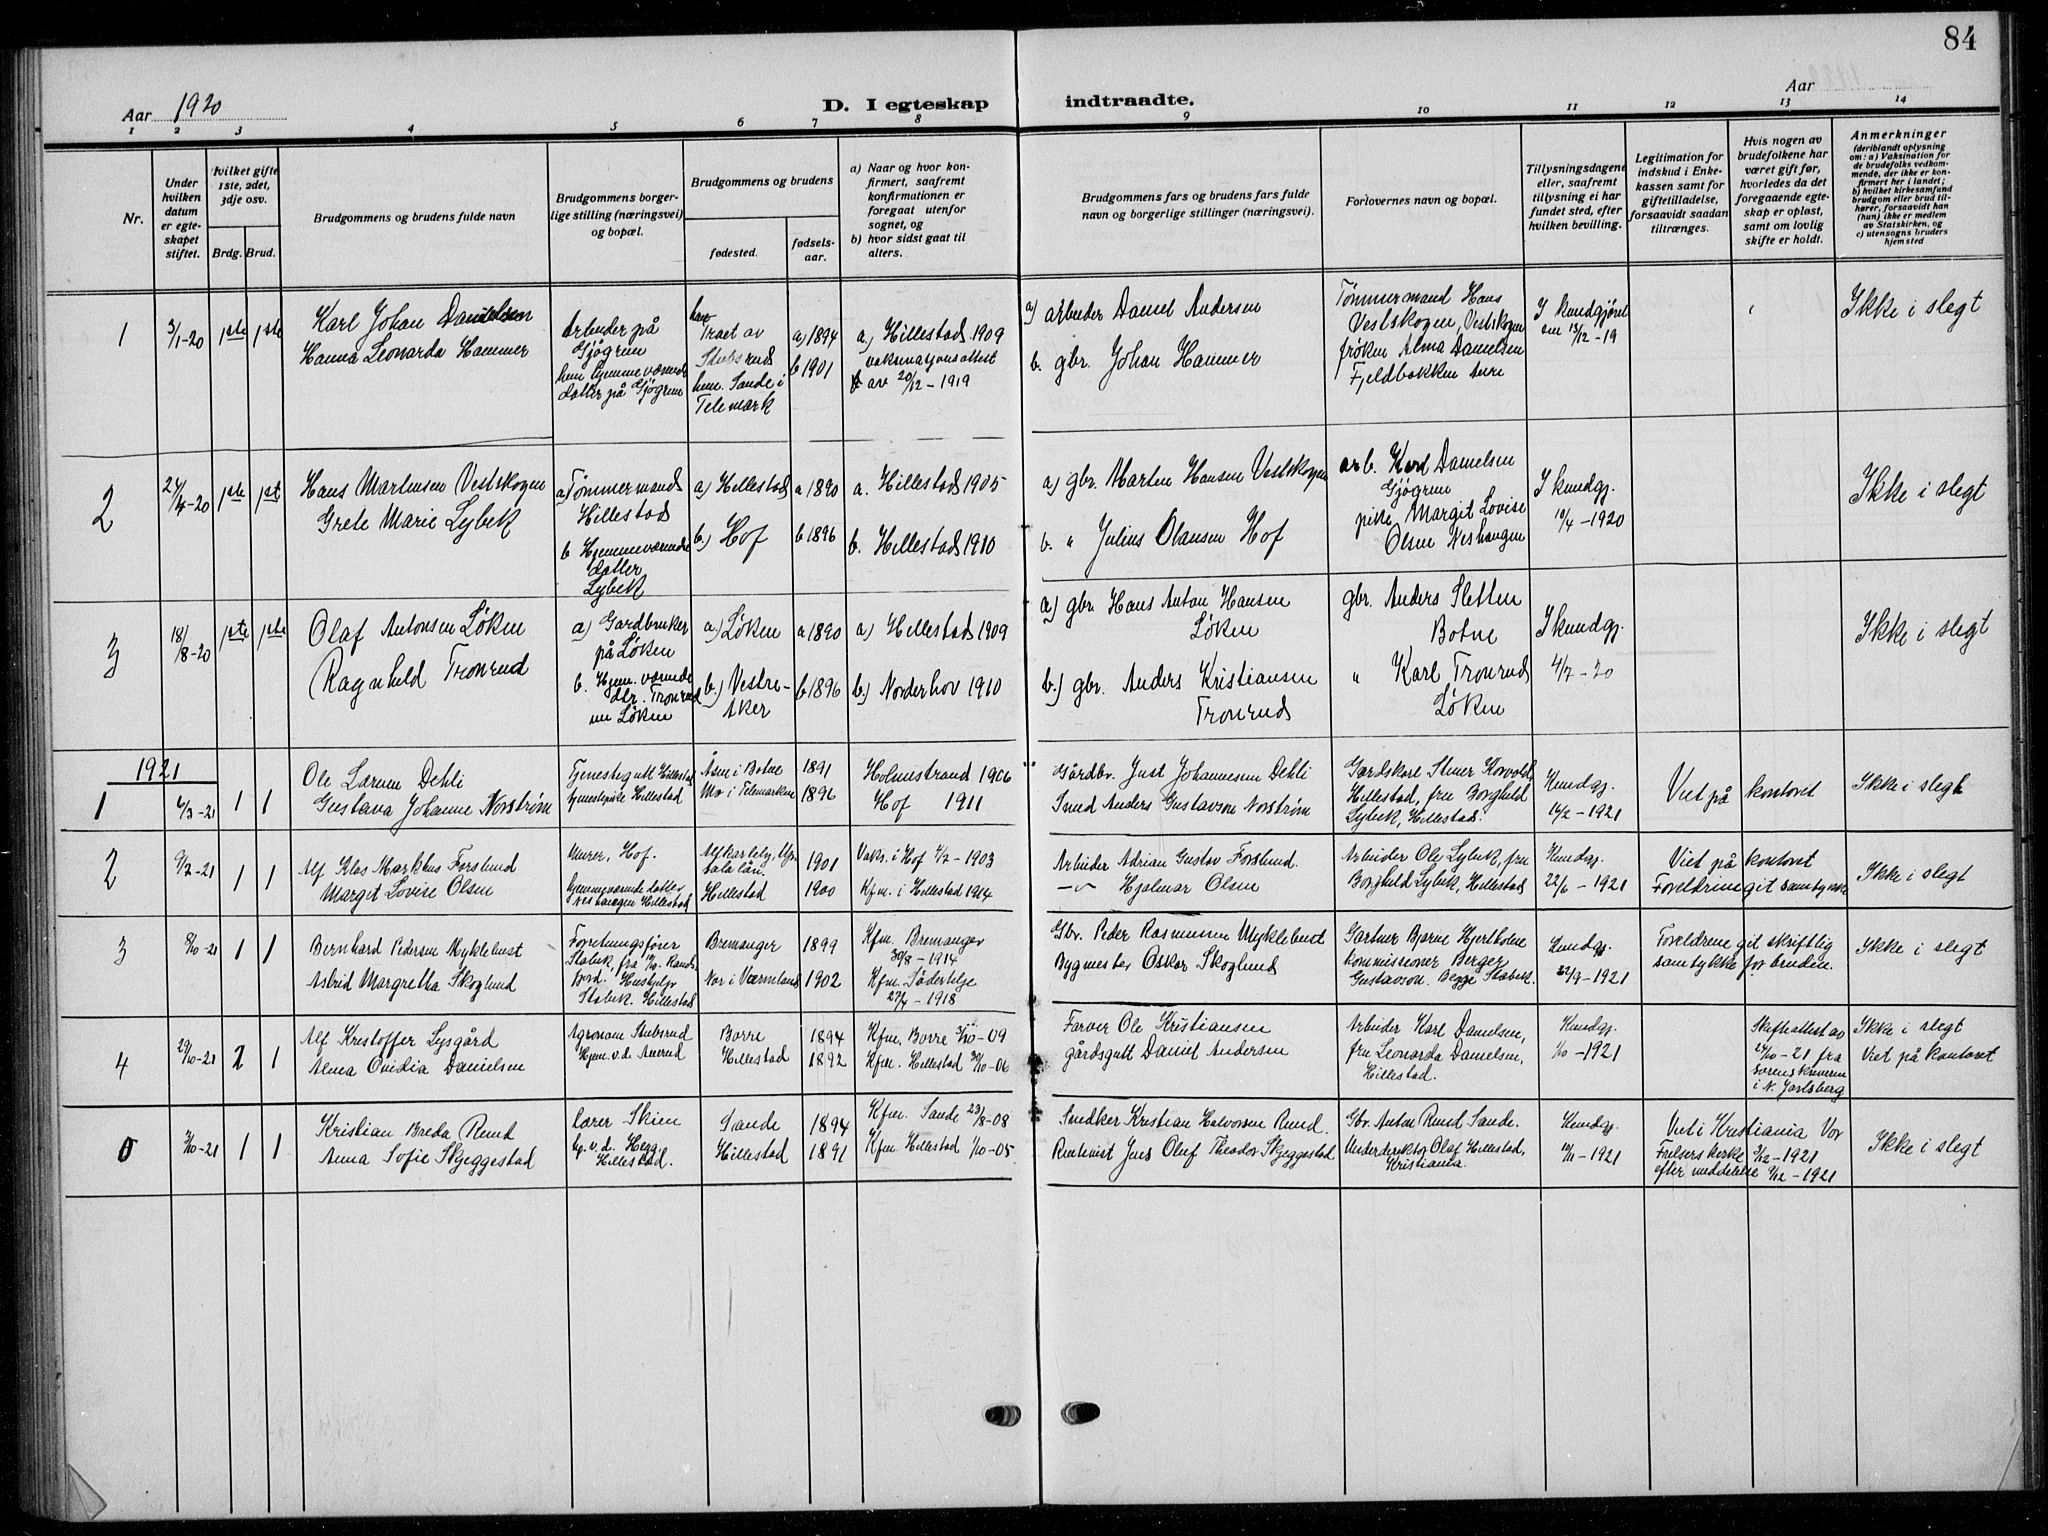 84
Aar 1920
D. I egteskap
indtraadte.
Aar
1 2 3 4 5 6 7 8 9 10 11 12 13 14
Nr.
Under hvilken datum er egteskapet stiftet.
hvilket gifte 1ste, 2det, 3dje osv.
Brdg. Brud.
Brudgommens og brudens fulde navn
Brudgommens borgerlige stilling (næringsvei) og bopæl.
Brudgommens og brudens
fødested.
fødselsaar.
a) Naar og hvor konfirmert, saafremt konfirmationen er foregaat utenfor sognet, og
b) hvor sidst gaat til alters.
Brudgommens fars og brudens fars fulde navn og borgerlige stillinger (næringsvei).
Forlovernes navn og bopæl.
Tillysningsdagene eller, saafremt tillysning ei har fundet sted, efter hvilken bevilling.
Legitimation for indskud i Enkekassen samt for giftetilladelse, forsaavidt saadan tiltrænges.
Hvis nogen av brudefolkene har været gift før, hvorledes da det foregaaende egteskap er opløst, samt om lovlig skifte er holdt.
Anmerkninger
(deriblandt oplysning om: a) Vaksination for de brudefolks vedkommende, der ikke er konfirmert her i landet; b) hvilket kirkesamfund brudgom eller brud tilhører, forsaavidt han (hun) ikke er medlem av Statskirken, og c) utensogns bruders hjemsted
1
3/1-20
1ste 1ste
Karl Johan Danielsen
Hanna Leonarda Hammer
Arbeider på
Gjøgrem
hun hjemmeværende
datter på Gjøgrem
han
Traet av
Stubsrud
hun. Sande i
Telemark
a) 1894
b 1901
a) Hillestad 1909
vaksinasjonsattest
av 20/12-1919
a) arbeider Daniel Andersen
b. gbr. Johan Hammer
Tømmermand Hans
Vestskogen, Vestskogen
frøken Alma Danielsen
Fjeldbakken
I kundgjørel
13/12-19
Ikke i slegt
2
24/4-20
1ste 1st
Hans Martinsen Vestskogen
Grete Marie Lybek
a) Tømmermand
Hillestad
b Hjemmeværende
datter
Lybek
a) Hillestad
b.) Hof
a 1890
b 1896
a. Hillestad 1905
b. Hillestad 1910
a) gbr. Martin Hansen Vestskogen
b. " Julius Olausen Hof
arb. Karl Danielsen
Gjøgrem
pike Margit Lovise
Olsen
I kundgj.
10/4-1920
Ikke i slegt
3
18/8-20
1ste 1ste
Olaf Antonsen Løken
Ragnhild Tronrud
a) Gardbruker
på Løken
b. Hjem. værende
dtr. Tronrud
nu Løken
a) Løken
b.) Vestre-
Aker
a 1890
b 1896
a) Hillestad 1909
b) Norderhov 1910
a) gbr. Hans Anton Hansen
Løken
b.) gbr. Anders Kristiansen
Tronrud
gbr. Anders Sletten
Botne
" Karl Tronrud
Løken
I kundgj.
4/7-20
Ikke i slegt
1921
1
6/3-21
1 1
Ole Larsen Dehli
Gustava Johanne Norstrøm
Tjenestegutt Hillestad
tjenestepike Hillestad
Åsen i Botne
Mo i Telemarken
1891
1896
Holmestrand 1906
Hof 1911
Gårdbr. Just Johannesen Dehli
Smed Anders Gustavson Norstrøm
Gardskarl Stener Korvold,
Hillestad, fru Borghild
Lybek, Hillestad.
Kundgj.
14/2-1921
Viet på kontoret
Ikke i slegt
2
9/7-21
1 1
Alf Klas Markus Forslund
Margit Lovise Olsen
Murer, Hof.
hjemmeværende datter
Hillestad
Alfkarleby, Up-
sala län.
Hillestad
1901
1900
Vaks. i Hof 4/2-1903
Kfm. i Hillestad 1914
Arbeider Adrian Gustav Forslund.
—"— Hjalmar Olsen
Arbeider Ole Lybek, fru
Borghild Lybek, Hillestad
Kundgj.
22/6-1921
Viet på kontoret
Foreldrene git samtykke
Ikke i slegt
3
8/10-21
1 1
Bernhard Pedersen Myklebust
Astrid Margretha Skoglund
Forretningsfører
Stabek, fra 14/10. Rands-
fjord. Hushjelp
Stabek. Hillestad
Bremanger
Nor i Værmland
1899
1902
Kfm. Bremanger
30/8-1914
Kfm. Södertelje
27/4-1918
Gbr. Peder Rasmussen Myklebust
Bygmester Oskar Skoglund
Gartner Bjarne Hjertholm
kommissioner Berger
Gustavson. Begge Stabek.
Kundgj.
22/9-1921
Foreldrene git skriftlig
samtykke for bruden.
Ikke i slegt
4
29/10-21
2 1
Alf Kristoffer Lysgård
Alma Ovidia Danielsen
Agronom Stubsrud
Hjem. v. d. Anerud
Borre
Hillestad
1894
1892
Kfm. Borre 3/10-09
Kfm. Hillestad 30/10-06
Farver Ole Kristiansen
gårdsgutt Daniel Andersen
Arbeider Karl Danielsen,
fru Leonarda Danielsen,
Hillestad.
Kundgj.
1/10-1921
Skifteattest av
24/10-21 fra
Sorenskriveren
i N. Jarlsberg
Ikke i slegt
Viet på kontoret
5
1 1
Kristian Breda Rund
Anna Sofie Skjeggestad
Lærer Skien
hj. v. d. Hegg
Hillestad.
Sande
Hillestad
1894
1891
Kfm. Sande 23/8-08
Kfm Hillestad 1/10-05
Kristian Halvorsen Rund.
Jens Olaf Theodor Skjeggestad
Gbr. Anton Rund Sande.
Underdirektør Olaf Hillestad,
Kristiania.
Kundgj.
10/11-1921
Viet i Kristiania Vor
Frelsers kirke 3/12-1921
efter meddelelse 9/12-1921
Ikke i slegt